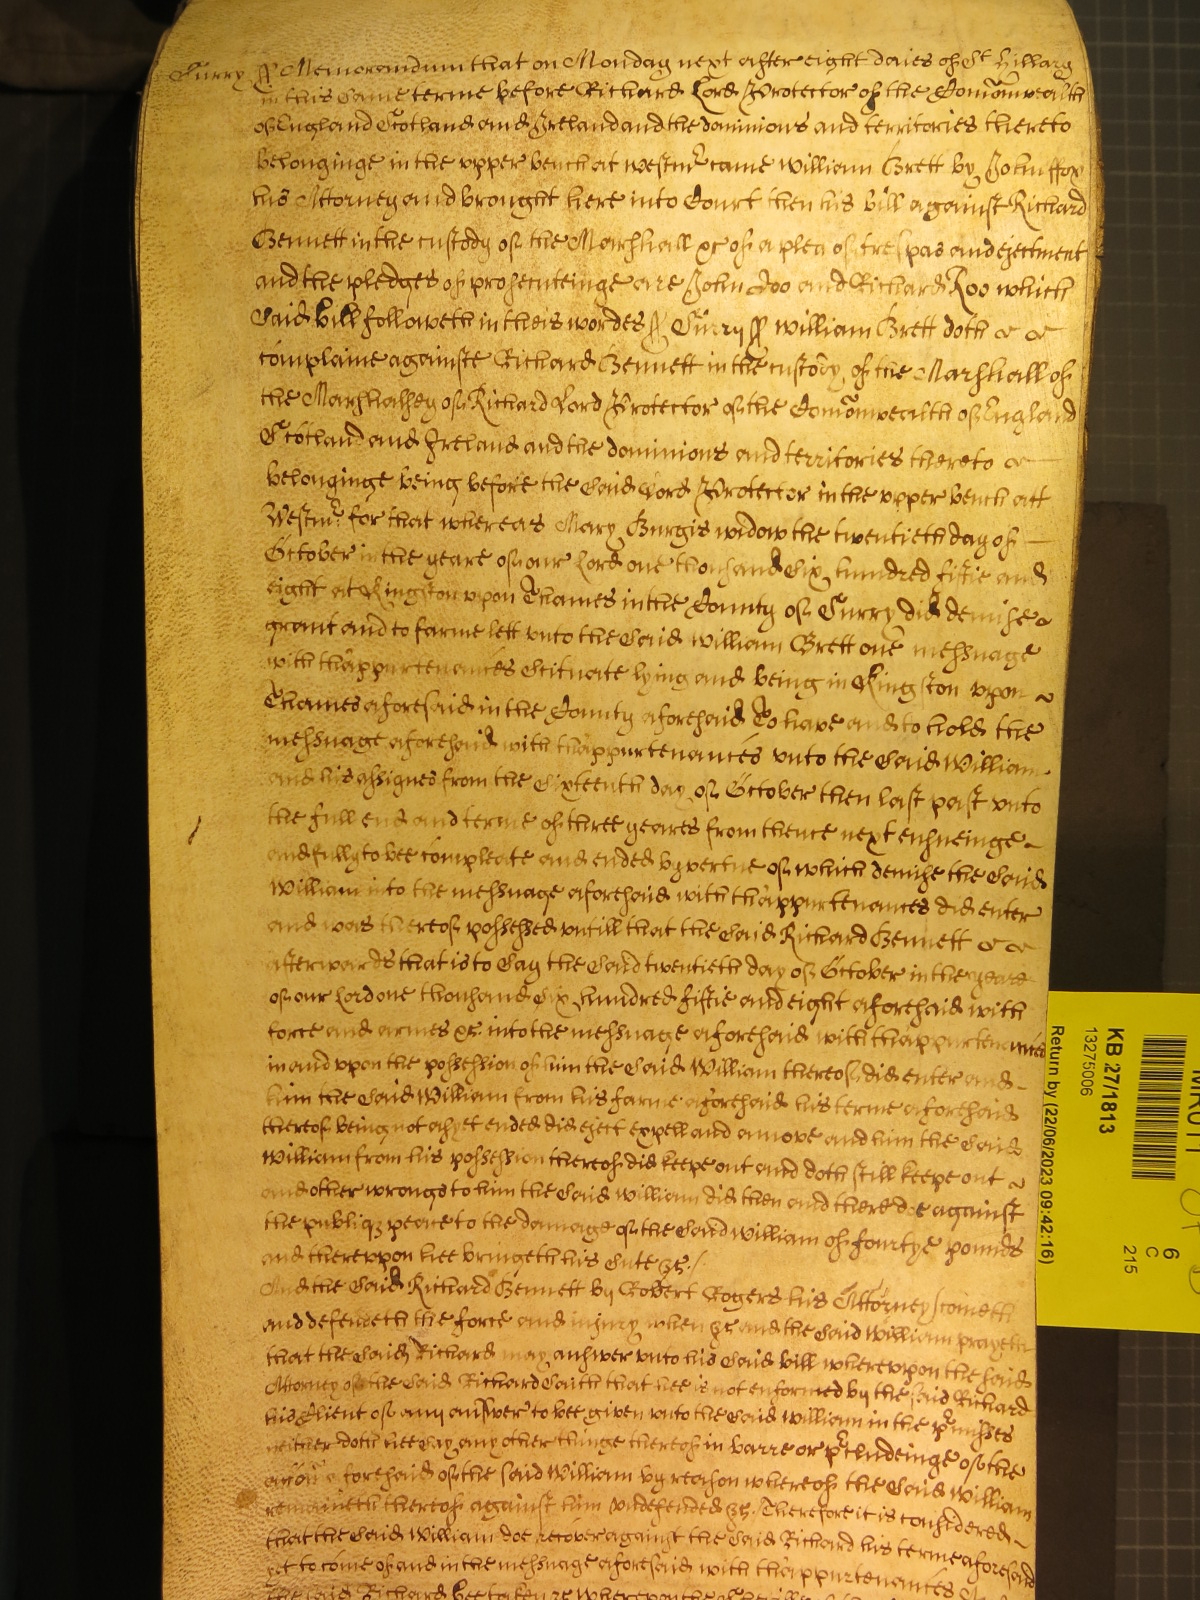 Surry ss Memorandum that on Monday next after eight daies of St Hillary
in this same terme before Richard Lord Protector of the Comonwealth
of England Scotland and Ireland and the dominions and territories thereto
belonginge in the upper bench at Westmr came William Brett by John ffox
his Attorney and brought here into Court then his bill against Richard
Bennett in the custody of the Marshall &c of a plea of trespas and ejectment
and the pledges of prosecuteinge are John Doo and Richard Roo which
said bill followeth in theis wordes ss Surry ss William Brett doth
complaine againste Richard Bennett in the custody of the Marshall of
the Marshalsey of Richard Lord Protector of the Comonwealth of England
Scotland and Ireland and the dominions and territories thereto
belonginge being before the said Lord Protector in the upper bench att
Westmr for that whereas Mary Burgis widow the twentieth day of
October in the yeare of our Lord one thousand six hundred fiftie and
eight at Kingston upon Thames in the County of Surry did demise
grant and to farme lett unto the said William Brett one messuage
with thappurtenances scituate lying and being in Kingston upon
Thames aforesaid in the County aforesaid To have and to hold the
messuage aforesaid with thappurtenances unto the said William
and his assignes from the sixteenth day of October then last past unto
the full end and terme of three yeares from thence next ensueinge
and fully to bee compleate and ended by vertue of which demise the said
William into the messuage aforesaid with thappurtenances did enter
and was thereof possessed untill that the said Richard Bennett
afterwards that is to say the said twentieth day of October in the yeare
of our Lord one thousand six hundred fiftie and eight aforesaid with
force and armes &c into the messuage aforesaid with thappurtenances
in and upon the possession of him the said William thereof did enter and
him the said William from his farme aforesaid his terme aforesaid
thereof being not as yet ended did eject expell and amove and him the said
William from his possession thereof did keepe out and doth still keepe out
and other wrongs to him the said William did then and there doe against
the publiq peace to the damage of the said William of fourtye pounds
and thereupon hee bringeth his sute &c
And the said Richard Bennett by Robert Rogers his Attorney cometh
and defendeth the force and injury when &c and the said William prayeth
that the said Richard may answer unto his said bill whereupon the said
Attorney of the said Richard saith that hee is not enformed by the said Richard
his Client of any answer to bee given unto the said William in the pmisses
neither doth hee say any other thinge thereof in barre or pcludeinge of the
accon aforesaid of the said William by reason whereof the said William
remaineth thereof against him undefended &c Therefore it is considered
that the said William doe recover against the said Richard his terme aforesaid
yet to come of and in the messuage aforesaid with thappurtenances
the said Richard bee taken &c whereupon the
KB 27/1813
13275006
Return by (22/06/2023 09:42:16)
6
C
215